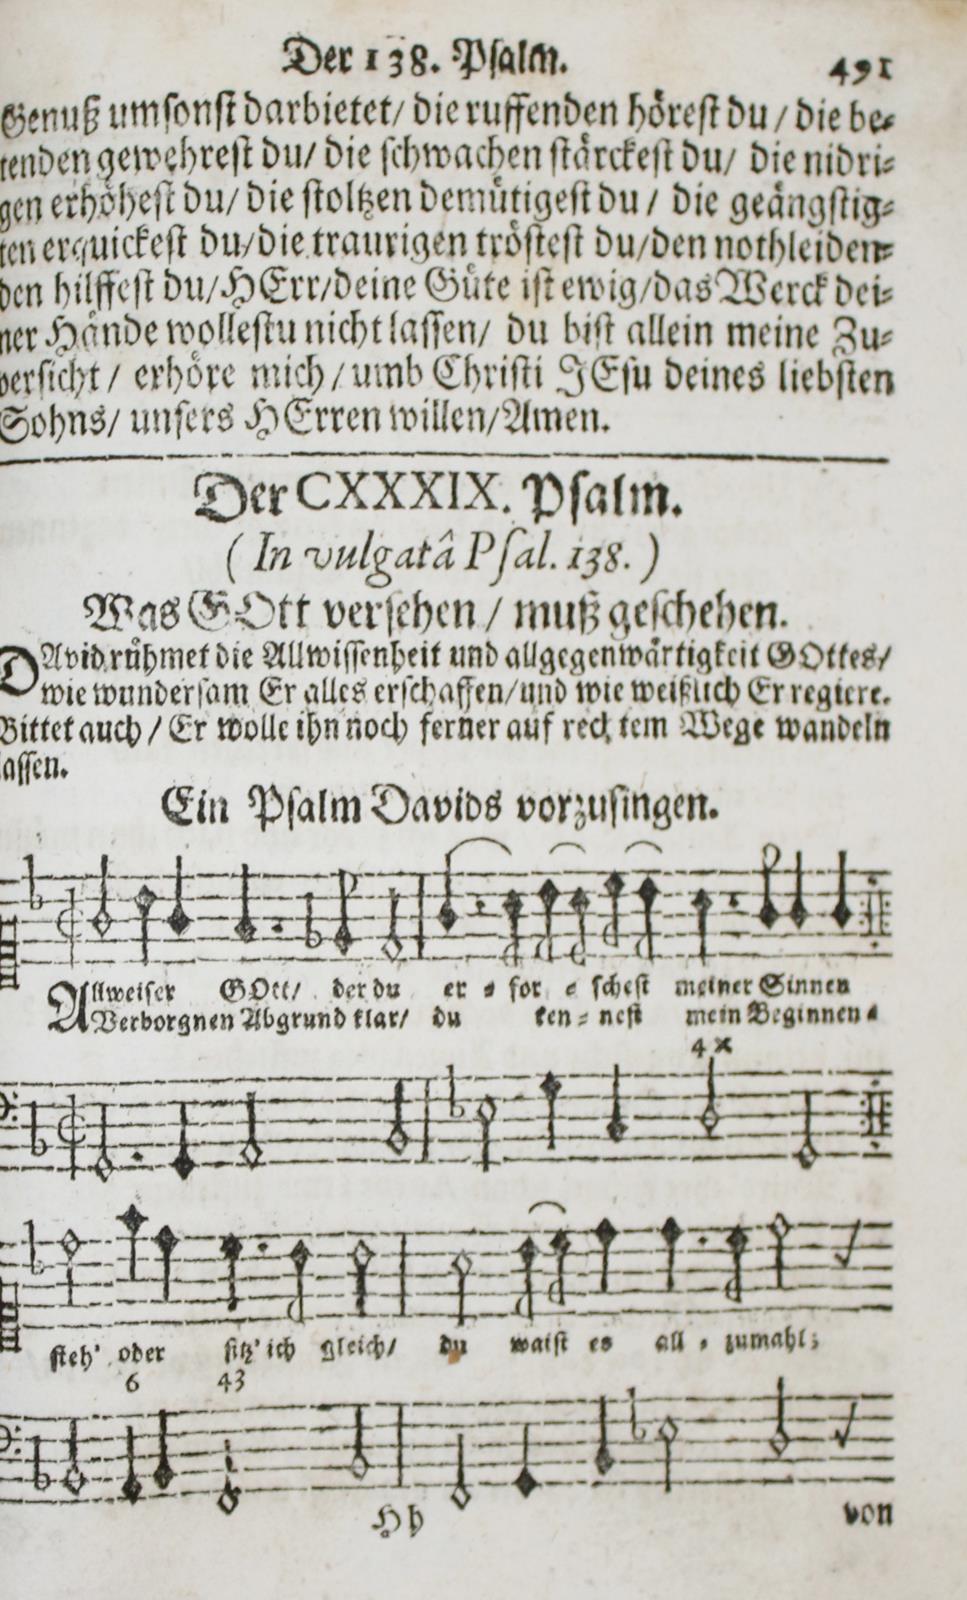 Der 138. Psalm. 491
Genuß umsonst darbietet/ die ruffenden hörest du/ die be-
tenden gewehrest du/ die schwachen stärckest du/ die nidri-
gen erhöhest du/ die stoltzen demütigest du/ die geängstig-
ten erquickest du/ die traurigen tröstest du/ den nothleiden-
den hilffest du/ HErr/ deine Güte ist ewig/ das Werck dei-
ner Hände wollestu nicht lassen/ du bist allein meine Zu-
versicht/ erhöre mich/ umb Christi JEsu deines liebsten
Sohns/ unsers HErren willen/ Amen.
Der CXXXIX. Psalm.
(In vulgatâ Psal. 138.)
Was GOtt versehen/ muß geschehen.
DAvid rühmet die Allwissenheit und allgegenwärtigkeit GOttes/
wie wundersam Er alles erschaffen/ und wie weißlich Er regiere.
Bittet auch/ Er wolle ihn noch ferner auf rechtem Wege wandeln
lassen.
Ein Psalm Davids vorzusingen.
Allweiser GOtt/ der du er-for-schest meiner Sinnen
Verborgnen Abgrund klar/ du ken-nest mein Beginnen.
4 x
steh' oder sitz' ich gleich/ du waist es all-zumahl;
6 43
Hh von